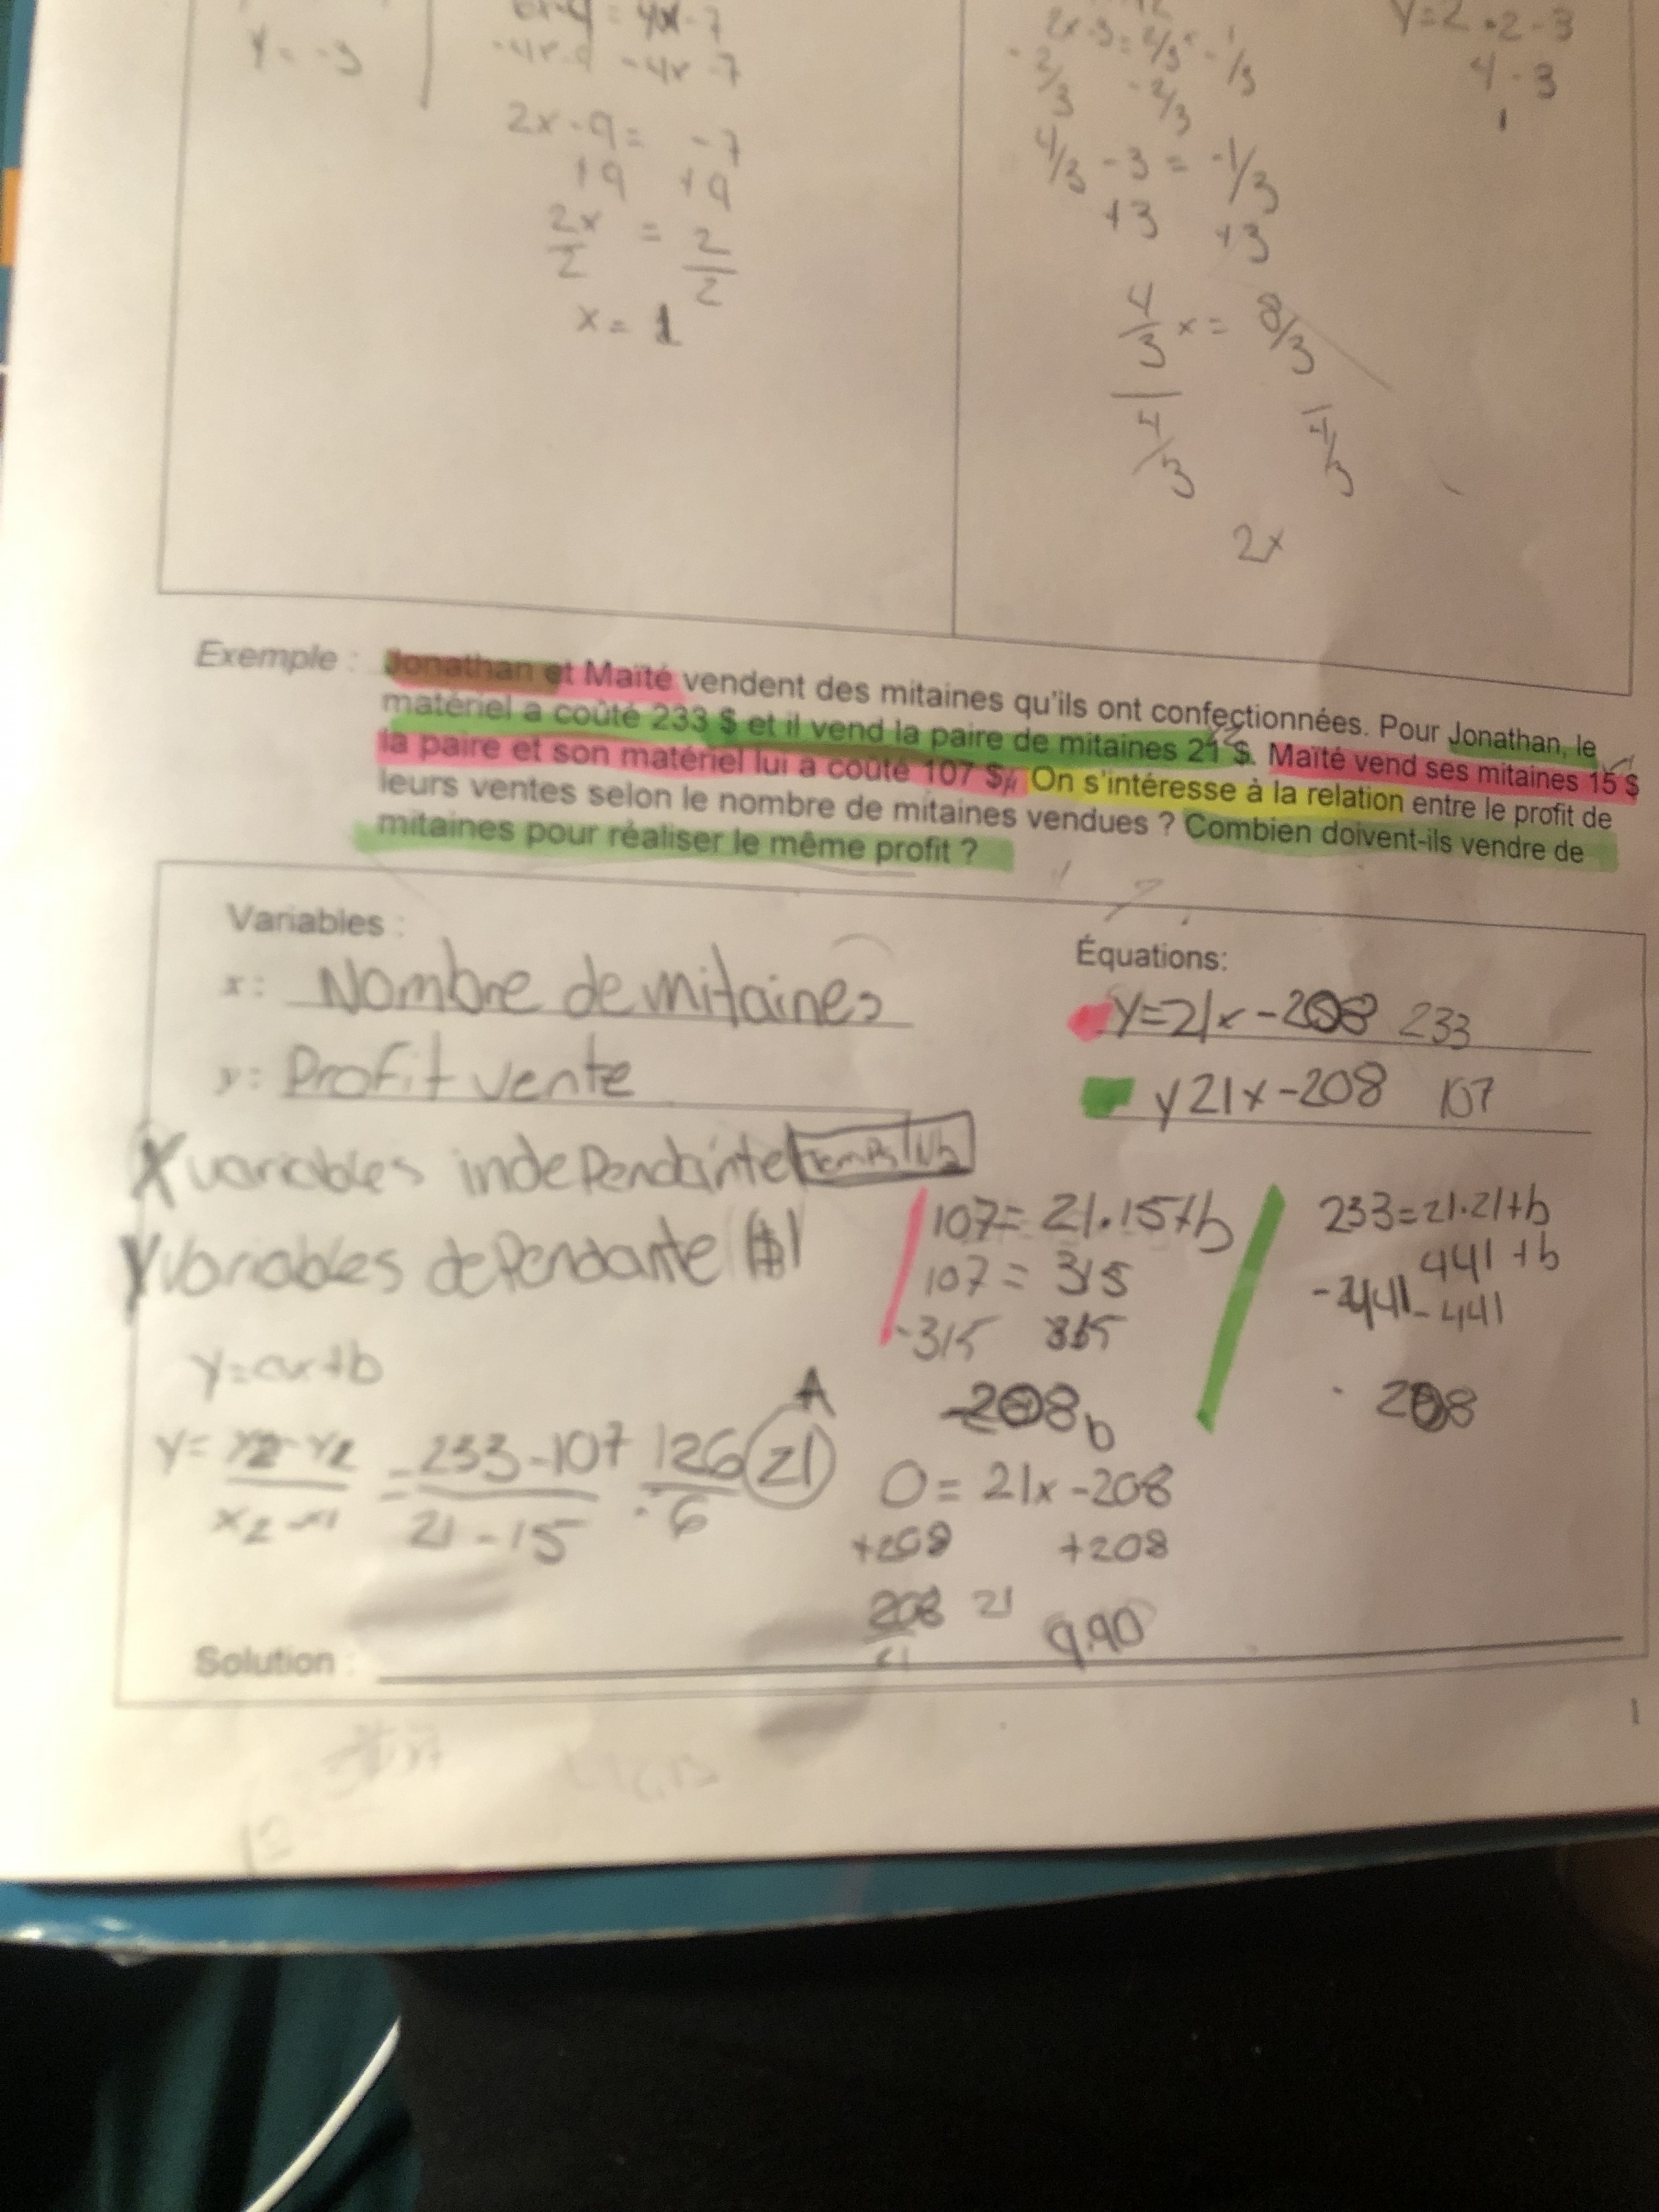 y = -3
= 4x-7
-4x -7
2x-9= -7
+9 +9
2x/2 = 2/2
x= 1
2x-3=2/3x -1/3
-2/3 -2/3
4/3 -3 = -1/3
+3 +3
4/3 x= 8/3
4/3 4/3
2x
y=2•2-3
4-3
1
Exemple : Jonathan et Maïté vendent des mitaines qu'ils ont confectionnées. Pour Jonathan, le
matériel a coûté 233 $ et il vend la paire de mitaines 21 $. Maïté vend ses mitaines 15 $
la paire et son matériel lui a coûté 107 $. On s'intéresse à la relation entre le profit de
leurs ventes selon le nombre de mitaines vendues ? Combien doivent-ils vendre de
mitaines pour réaliser le même profit ?
Variables :
x: Nombre de mitaines
y: Profit vente
Équations:
y=21x-208 233
y 21x-208 107
X variables independante temps/Nb
Y variables dependante ($)
y=ax+b
y= y2-y2/x2-x1 = 233-107/21-15 126/6 21 A
107= 21.15+b
107= 315
-315 315
-208 b
0= 21x-208
+208 +208
208 21 9.90
21
233=21.21+b
441+b
-441-441
- 208
Solution :
1